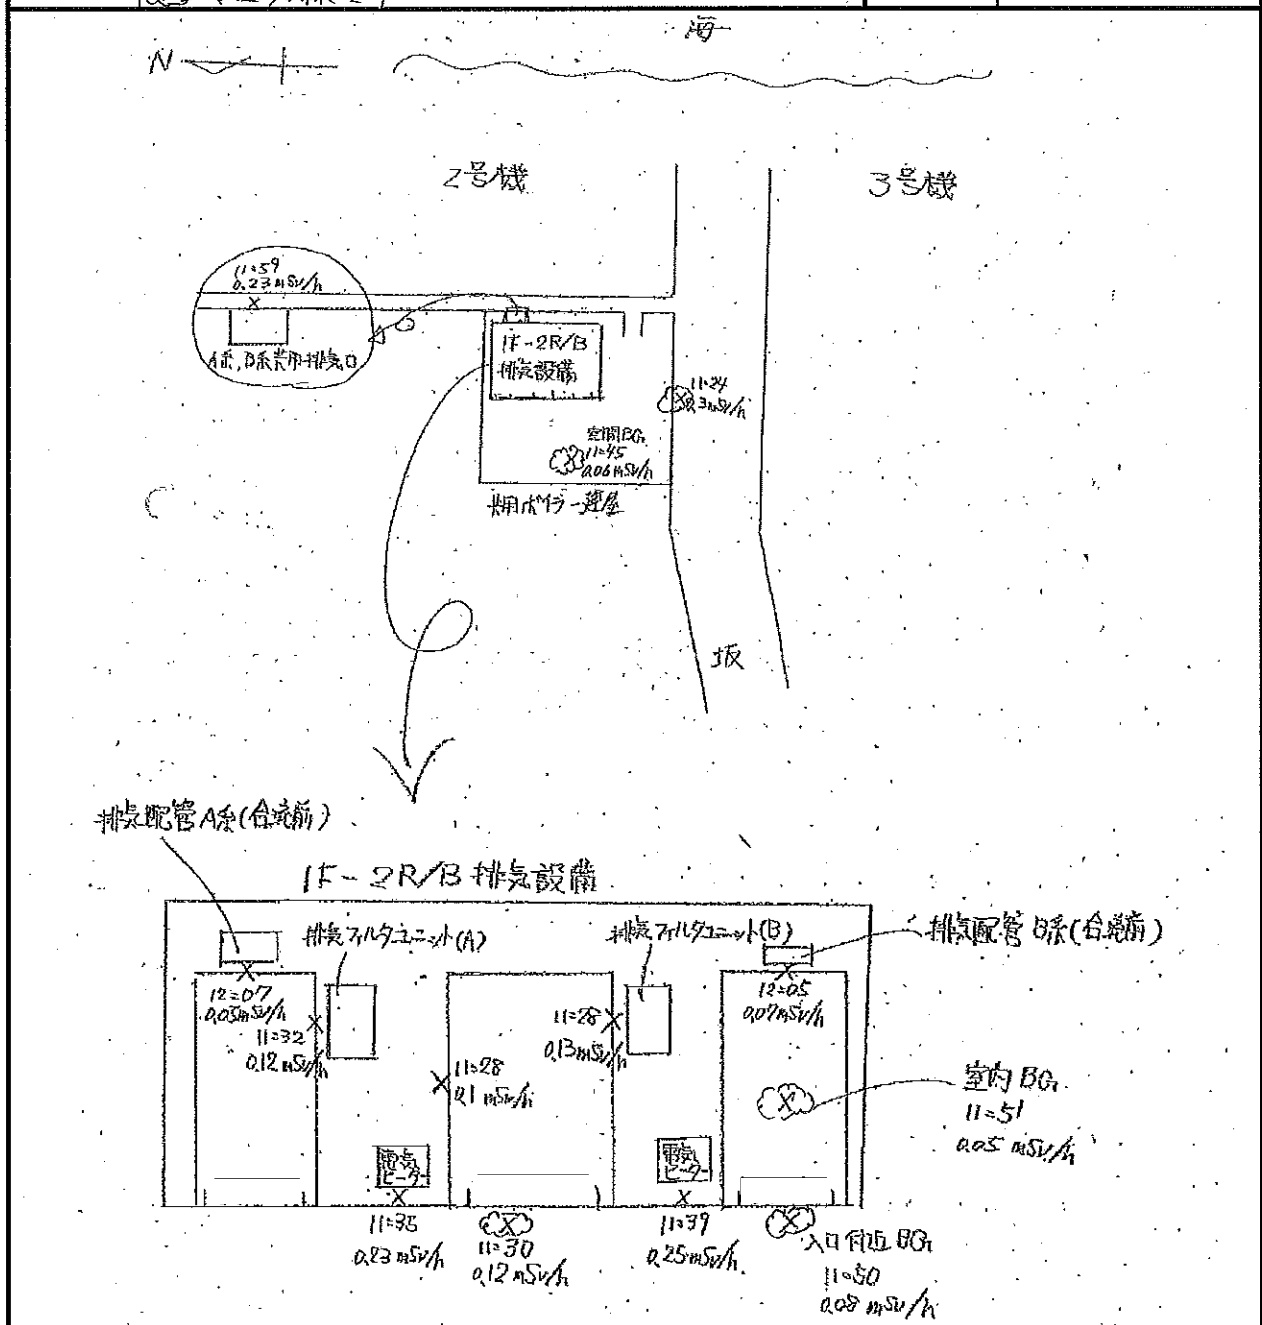 海
N
2号機
3号機
11=59
0.23mSv/h
A系,B系共用排気口
1F-2R/B
排気設備
11=24
0.3mSv/h
空間BG
11=45
0.06mSv/h
共用ボイラー建屋
坂
排気配管A系(合流前)
1F-2R/B 排気設備
排気フィルタユニット(A)
排気フィルタユニット(B)
排気配管B系(合流前)
12=07
11=32
0.12mSv/h
11=28
0.1mSv/h
11=28
0.13mSv/h
12=05
0.07mSv/h
室内BG
11=51
0.05mSv/h
電気
ヒーター
電気
ヒーター
0.23mSv/h
11=30
0.12mSv/h
11=39
0.25mSv/h
入口付近BG
11=50
0.08mSv/h